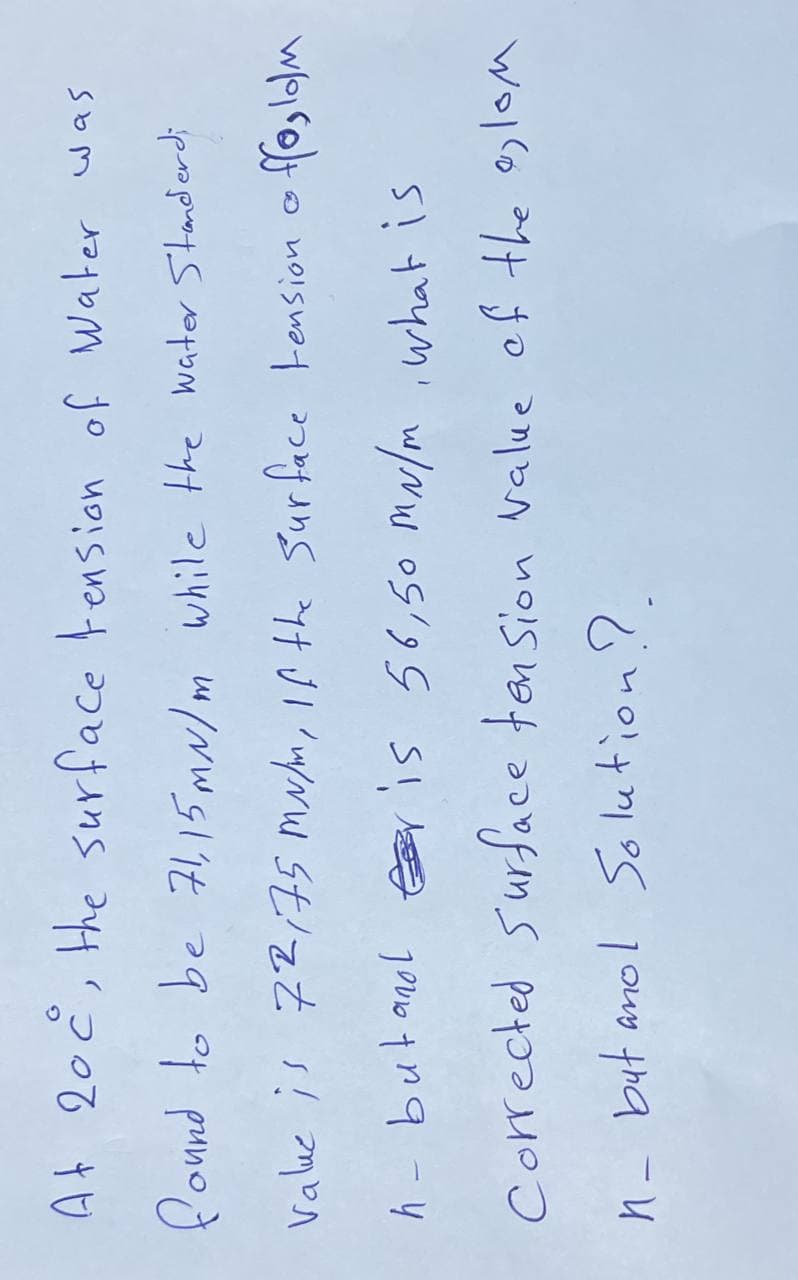 At 20C°, the surface tension of Water was
found to be 71,15 mN/m while the water Standerd;
value is 72,75 mN/m, If the surface tension of (0,10)M
n- butanol is 56,50 mN/m, what is
Corrected surface tension value of the 0,10M
n- butanol Solution?.